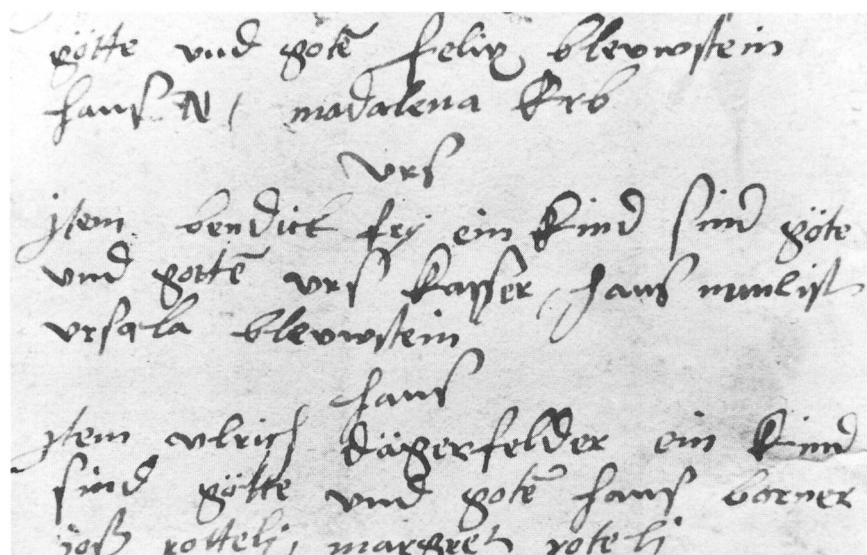 götte vnd gotē felix blevwstein
hans N, madalena Erb
vrs
jtem bendict frÿ ein kind sind göte
vnd gottē vrs kasser, hans
vrsala blevwstein
hans
jtem vlrich dägerfelder ein kind
sind götte vnd gotē hans borner
joß rotteli, margret roteli